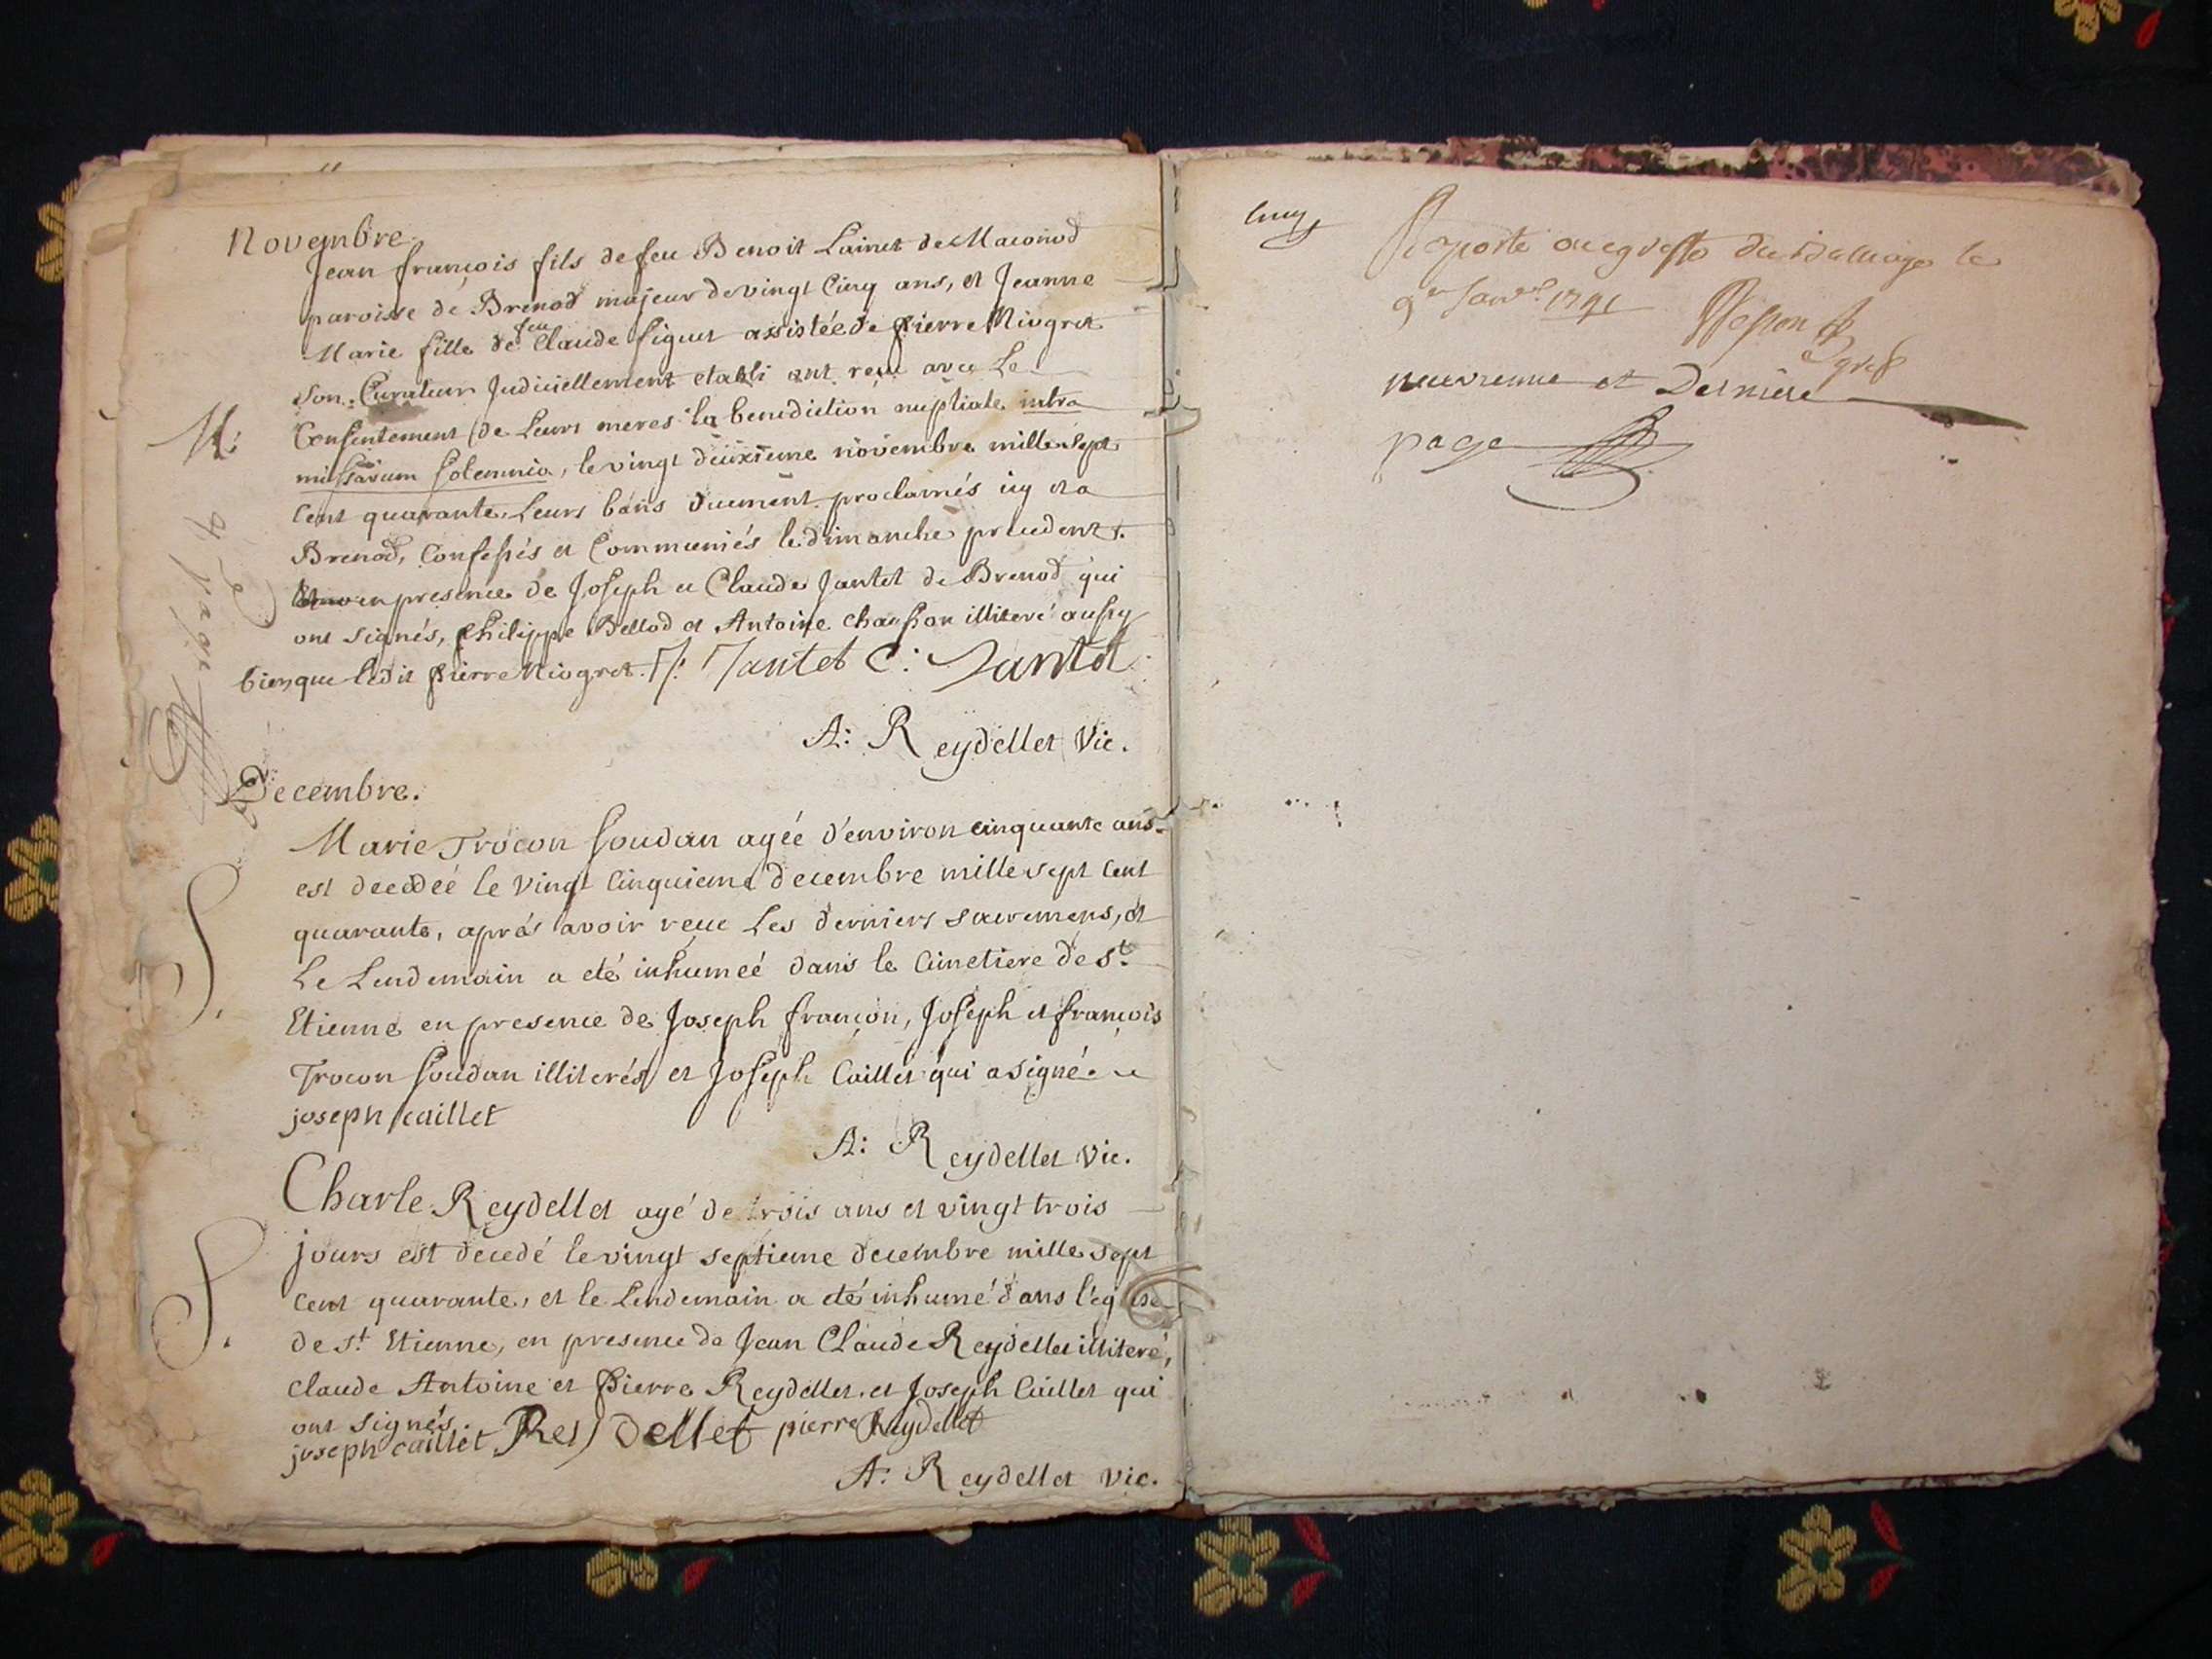 Novembre.
Jean françois fils de feu Benoit Lainet de Maconod
paroisse de Brenod majeur de vingt Cinq ans, et Jeanne
Marie fille de feu Claude figuet assistée de pierre Niogret
son Curateur Judiciellement etabli ont reçu avec Le
Consentement de Leurs meres la benediction nuptiale intra
M:
missarum solemnia, le vingt deuxieme novembre mille sept
cent quarante. Leurs bans duement proclamés icy et a
Brenod, Confessés et Communiés le dimanche precedent.
en presence de Joseph et Claude Jantet de Brenod qui
ont signés, philippe Bellod et Antoine chanson illiteré aussy
bien que ledit pierre Niogret. J: Jantet C: Jantet
A: Reydellet Vic.
page
Decembre.
Marie Trocon soudan agée d'environ cinquante ans
est decedeé le vingt Cinquieme decembre mille sept Cent
quarante, aprés avoir reçue Les derniers sacremens, et
Le Lendemain a eté inhumeé dans le Cimetiere de St.
S.
Etienne en presence de Joseph françon, Joseph et françois
Trocon soudan illiterés et Joseph Caillet qui a signé
joseph caillet
A: Reydellet Vic.
Charle Reydellet agé de trois ans et vingt trois
jours est decedé le vingt septieme decembre mille sept
cent quarante, et le Lendemain a eté inhumé dans l'eglise
S.
de St Etienne, en presence de Jean Claude Reydellet illiteré,
Claude Antoine et pierre Reydellet, et Joseph Caillet qui
ont signés.
joseph caillet Reydellet pierre Reydellet
A: Reydellet Vic.
Raporté au greffe du Balliage le
9 Janv. 1741
neuvieme et Derniere
page